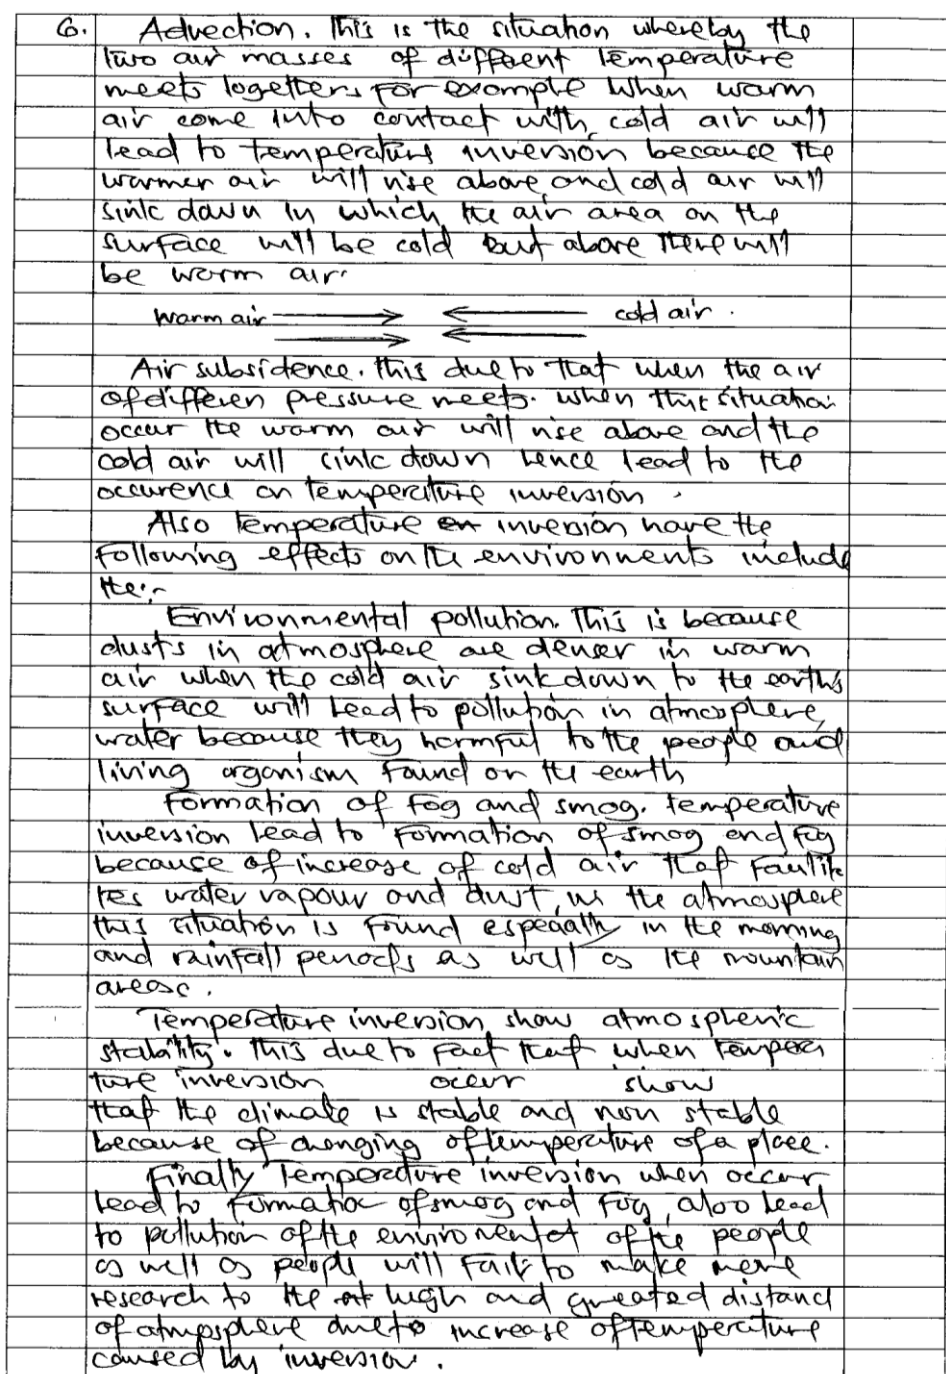 6. Advection. This is the situation whereby the
two air masses of different temperature
meets togetters for example when warm
air come into contact with cold air will
lead to temperature inversion because the
warmer air will rise above, and cold air will
sink down in which the air area on the
surface will be cold but above there will
be warm air.
warm air cold air.
Air subsidence. this due to that when the air
of differen pressure meets. when this situation
occur the warm air will rise above and the
cold air will sink down hence lead to the
occurence on temperature inversion.
Also temperature inversion have the
following effects on the environments include
the:-
Environmental pollution. This is because
dusts in atmosphere are denser in warm
air when the cold air sink down to the earth's
surface will lead to pollution in atmosphere,
water because they harmful to the people and
living organism found on the earth
Formation of fog and smog. temperature
inversion lead to formation of smog and fog
because of increase of cold air that
water vapour and dust, in the atmosphere
this situation is found especially in the morning
and rainfall periods as well as the mountain
areas.
Temperature inversion show atmospheric
stability. this due to fact that when tempera
ture inversion occur show
that the climate is stable and non stable
because of changing of temperature of a place.
Finally Temperature inversion when occur
lead to formation of smog and fog, also lead
to pollution of the of the people
as well as people will fail to make more
research to the high and greated distand
of atmposphere due to increase of temperature
caused by inversion.